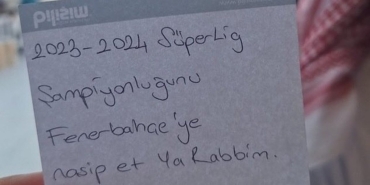 mısıllıq
2023-2024 SüperLig
Şampiyonluğunu
Fenerbahçe'ye
nasip et Ya Rabbim.